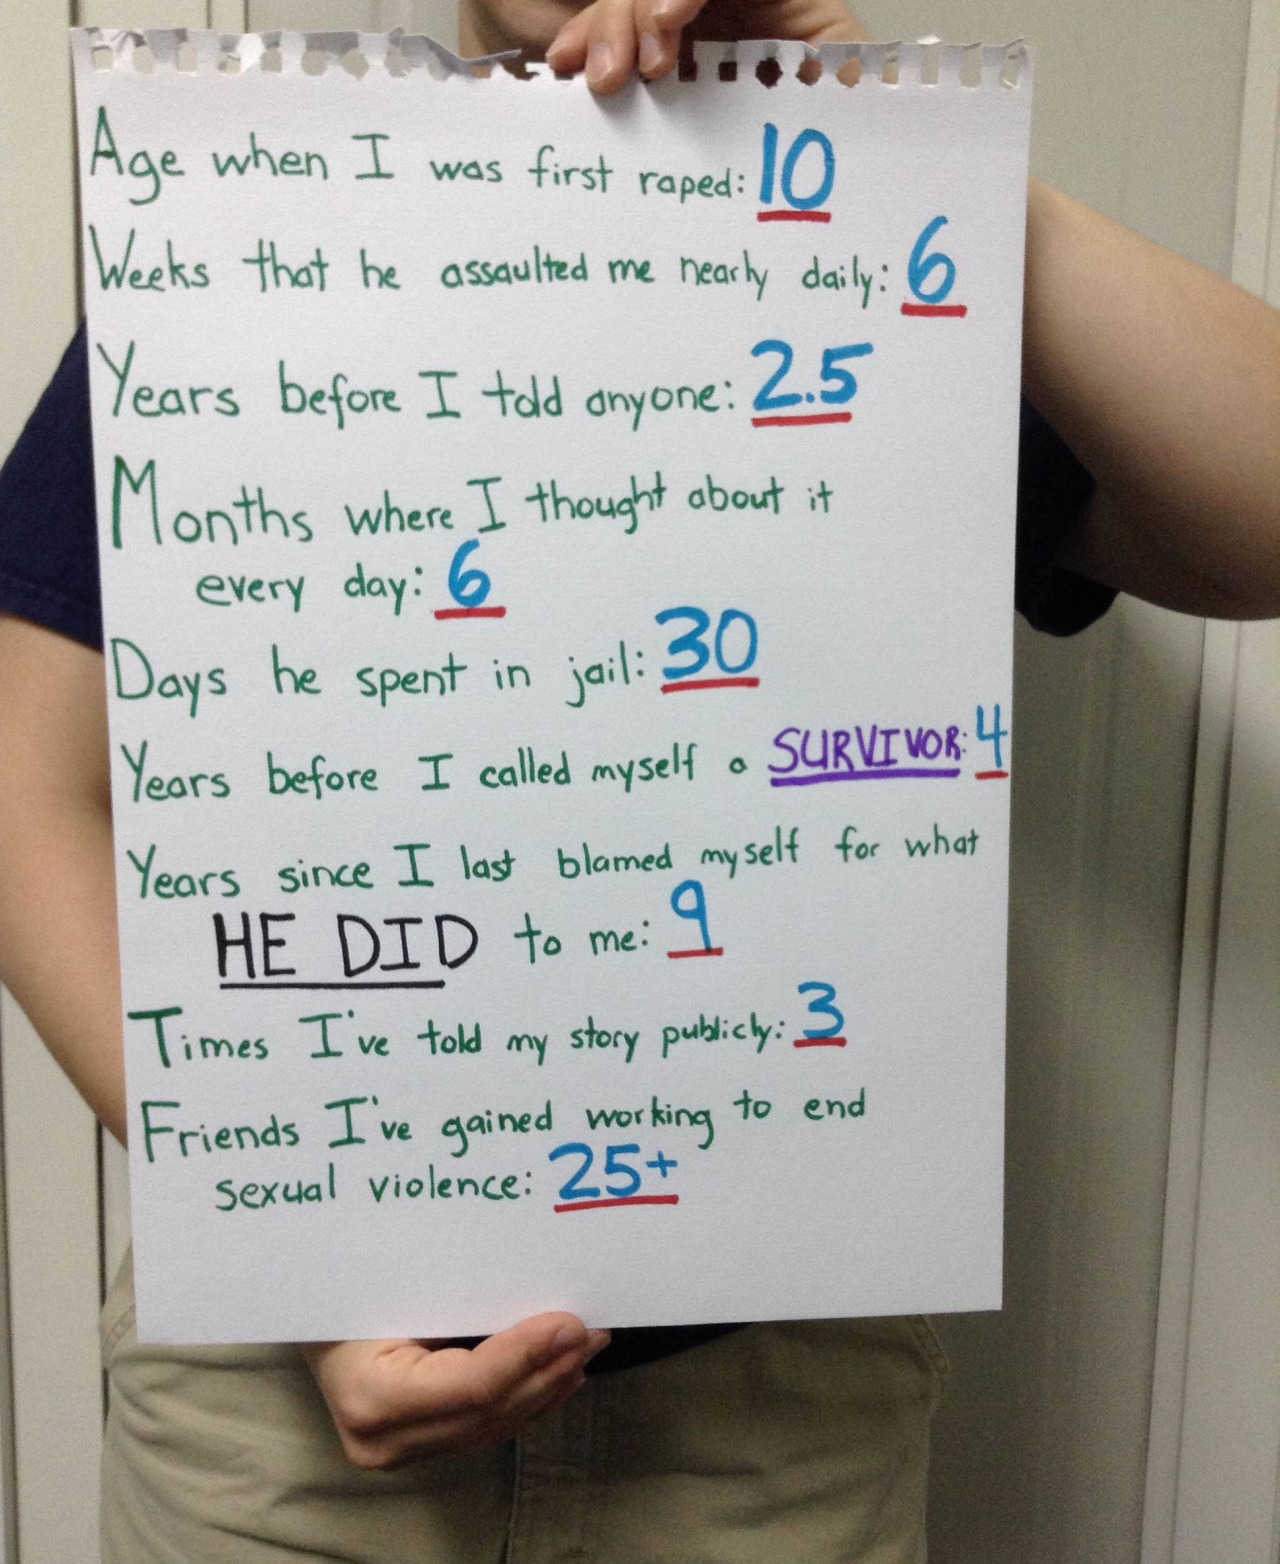 Age when I was first raped: 10
Weeks that he assaulted me nearly daily: 6
Years before I told anyone: 2.5
Months where I thought about it
every day: 6
Days he spent in jail: 30
Years before I called myself a SURVIVOR: 4
Years since I last blamed myself for what
HE DID to me: 9
Times I've told my story publicly: 3
Friends I've gained working to end
sexual violence: 25+